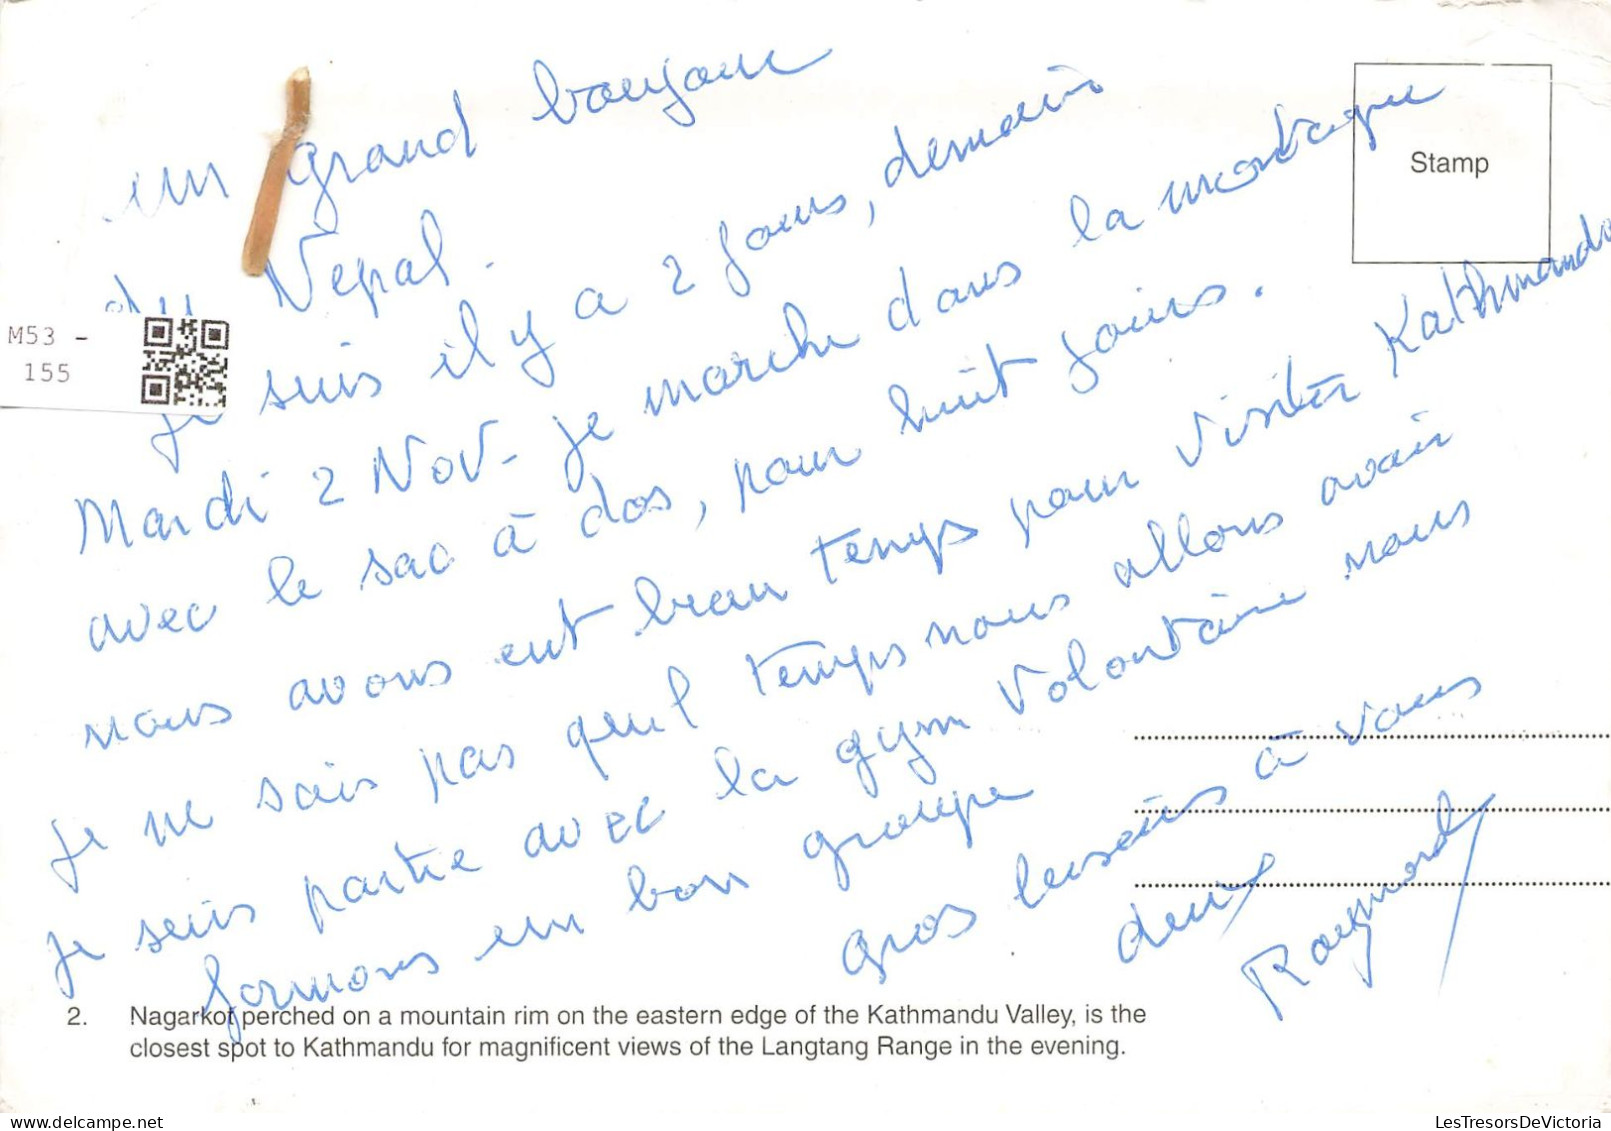 un grand bonjour
du Népal.
Je suis il y a 2 jours, demain
Mardi 2 Nov- je marche dans la montagne
avec le sac à dos, pour huit jours.
nous avons eut beau temps pour visiter Kathmandu
je ne sais pas quel temps nous allons avoir
je suis partie avec la gym volontaire nous
formons un bon groupe
gros baisers à vous
deux
Raymond
Stamp
M53 -
155
2. Nagarkot perched on a mountain rim on the eastern edge of the Kathmandu Valley, is the
closest spot to Kathmandu for magnificent views of the Langtang Range in the evening.
LesTresorsDeVictoria